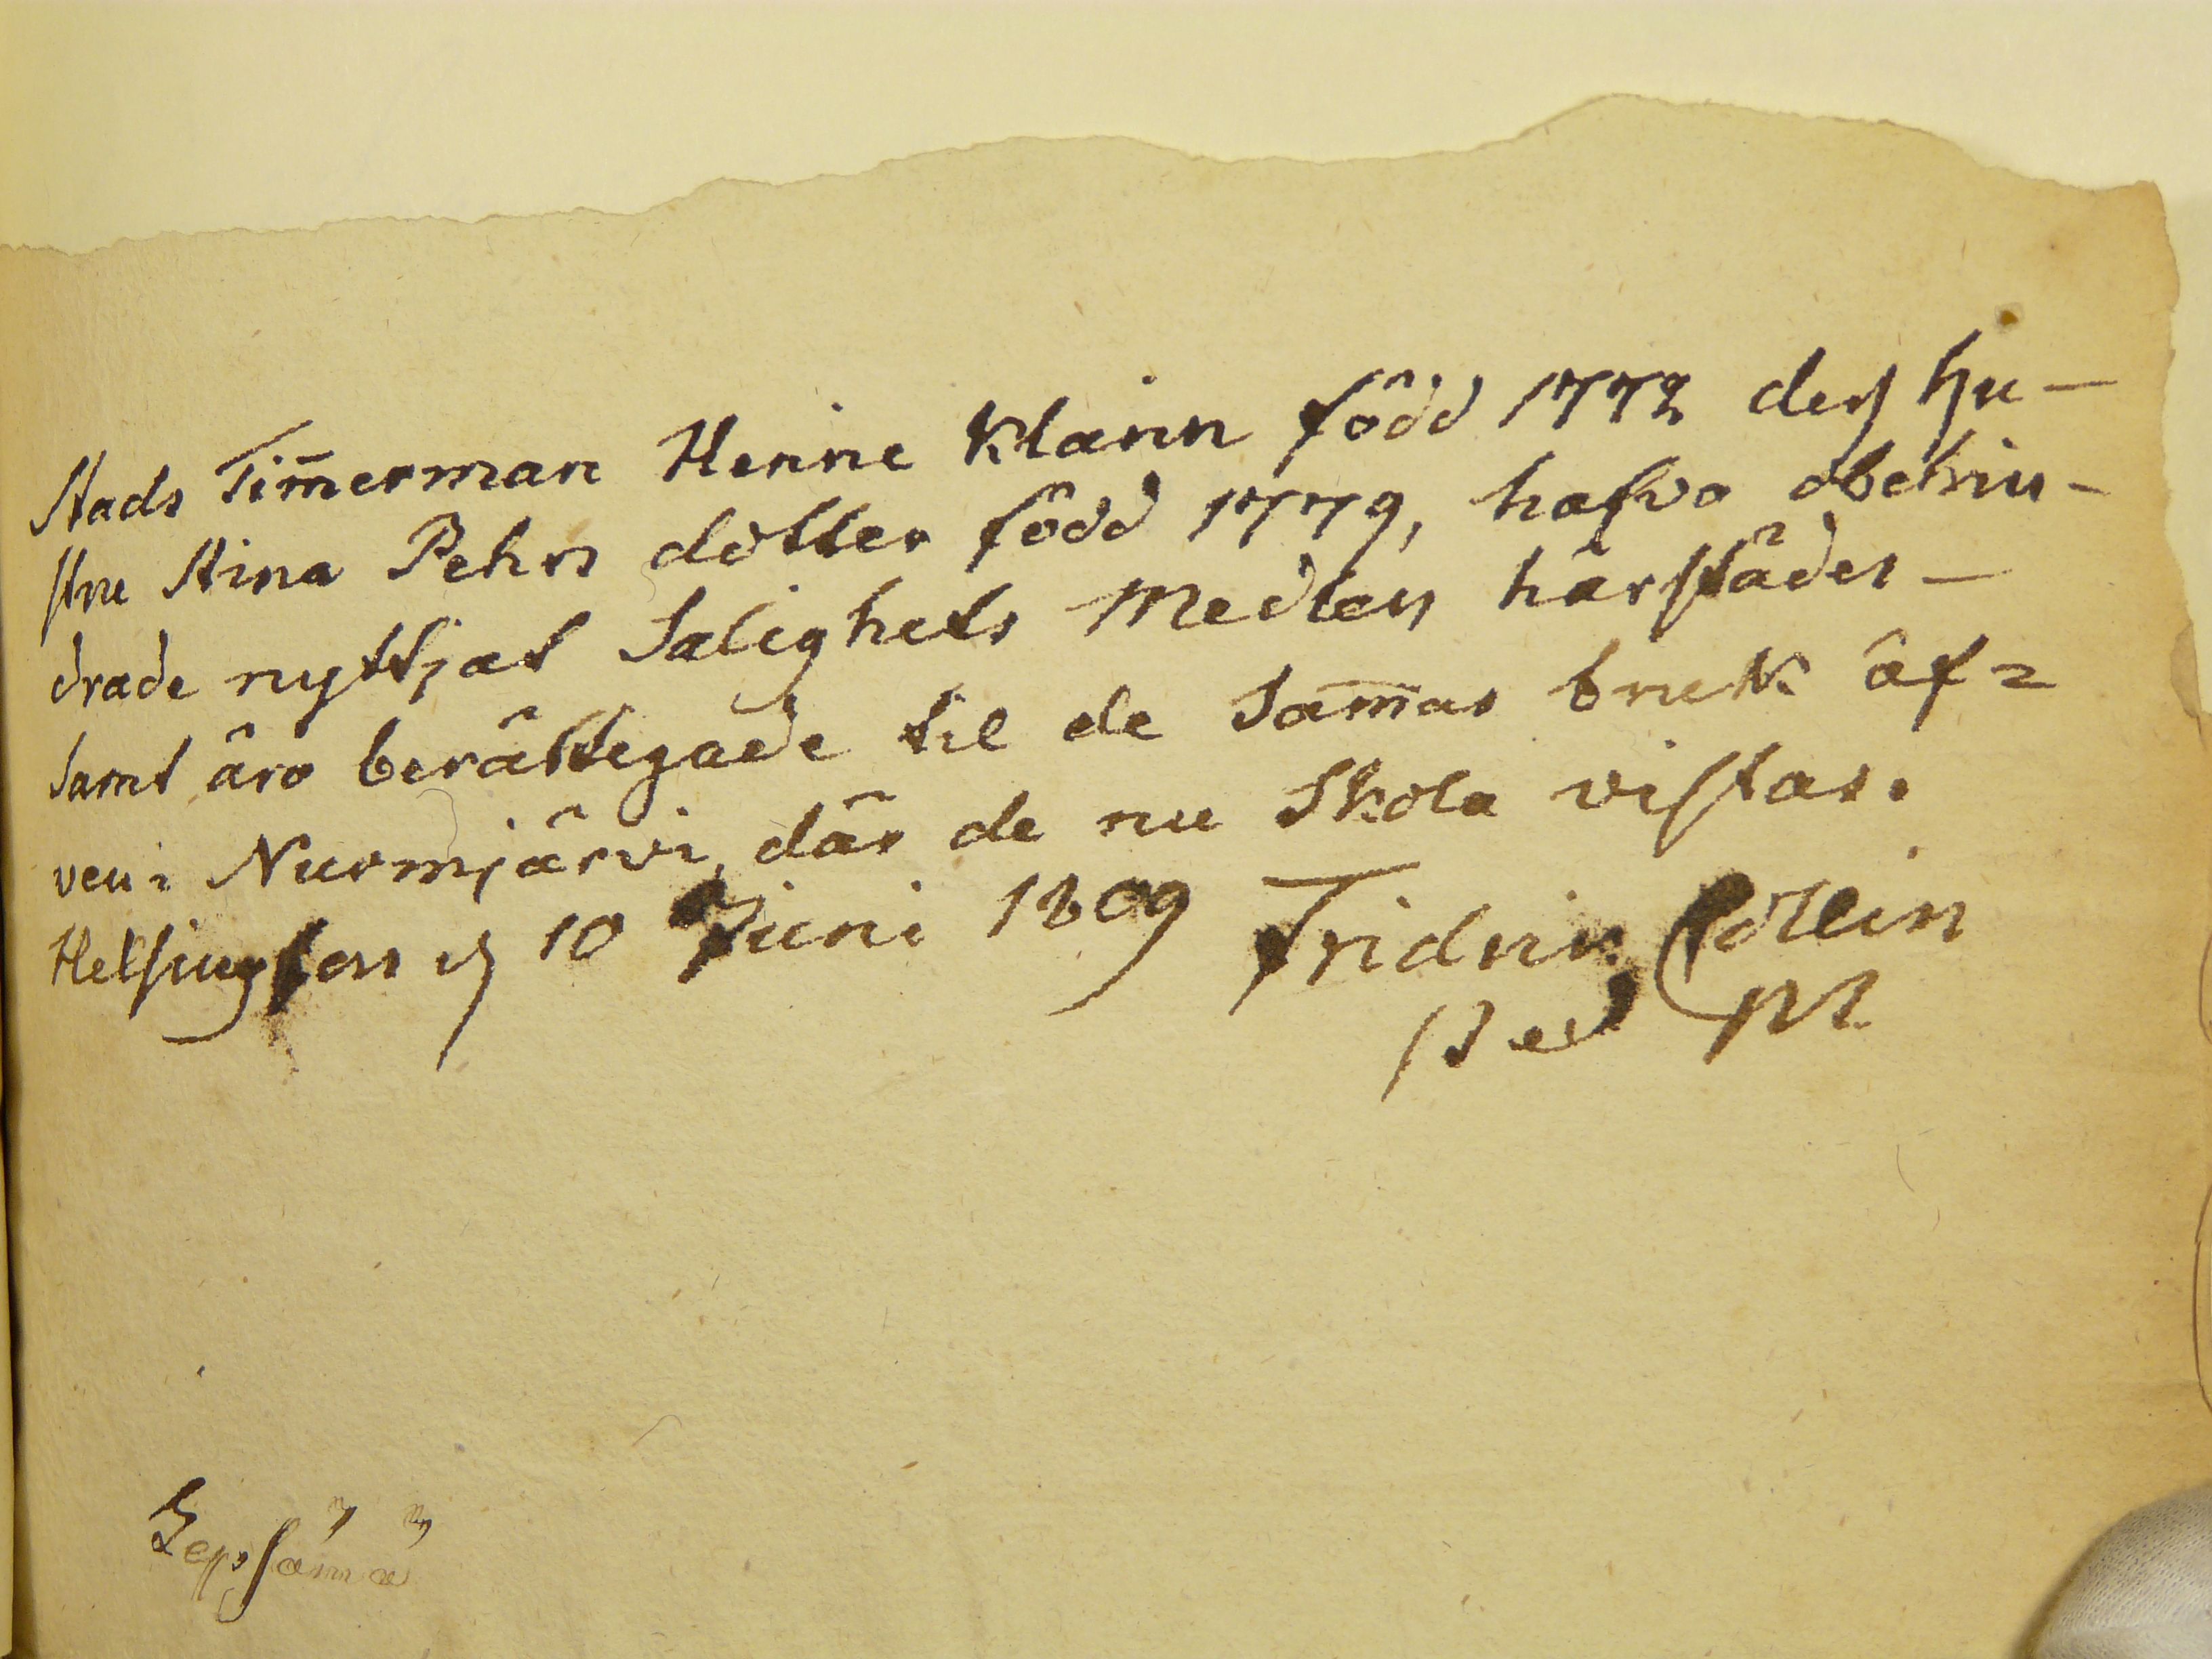 Stads Tim̄erman Henric Klarin född 1772 dess hu-
stru Stina Pehrs dotter född 1779, hafva obehin-
drade nyttjat Salighets Medlen härstädes -
samt äro berättigade til de Sam̄as bruk äf=
ven i Nurmijärvi, där de nu Skola vistas.
Helsingfors d 10 Juni 1809 Fridric Collin
M
Lepsämä